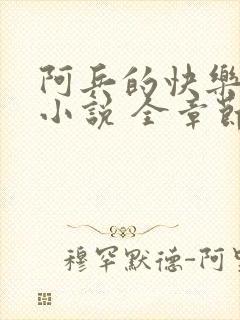 阿兵的快樂
小說 全章節
穆罕默德-阿里